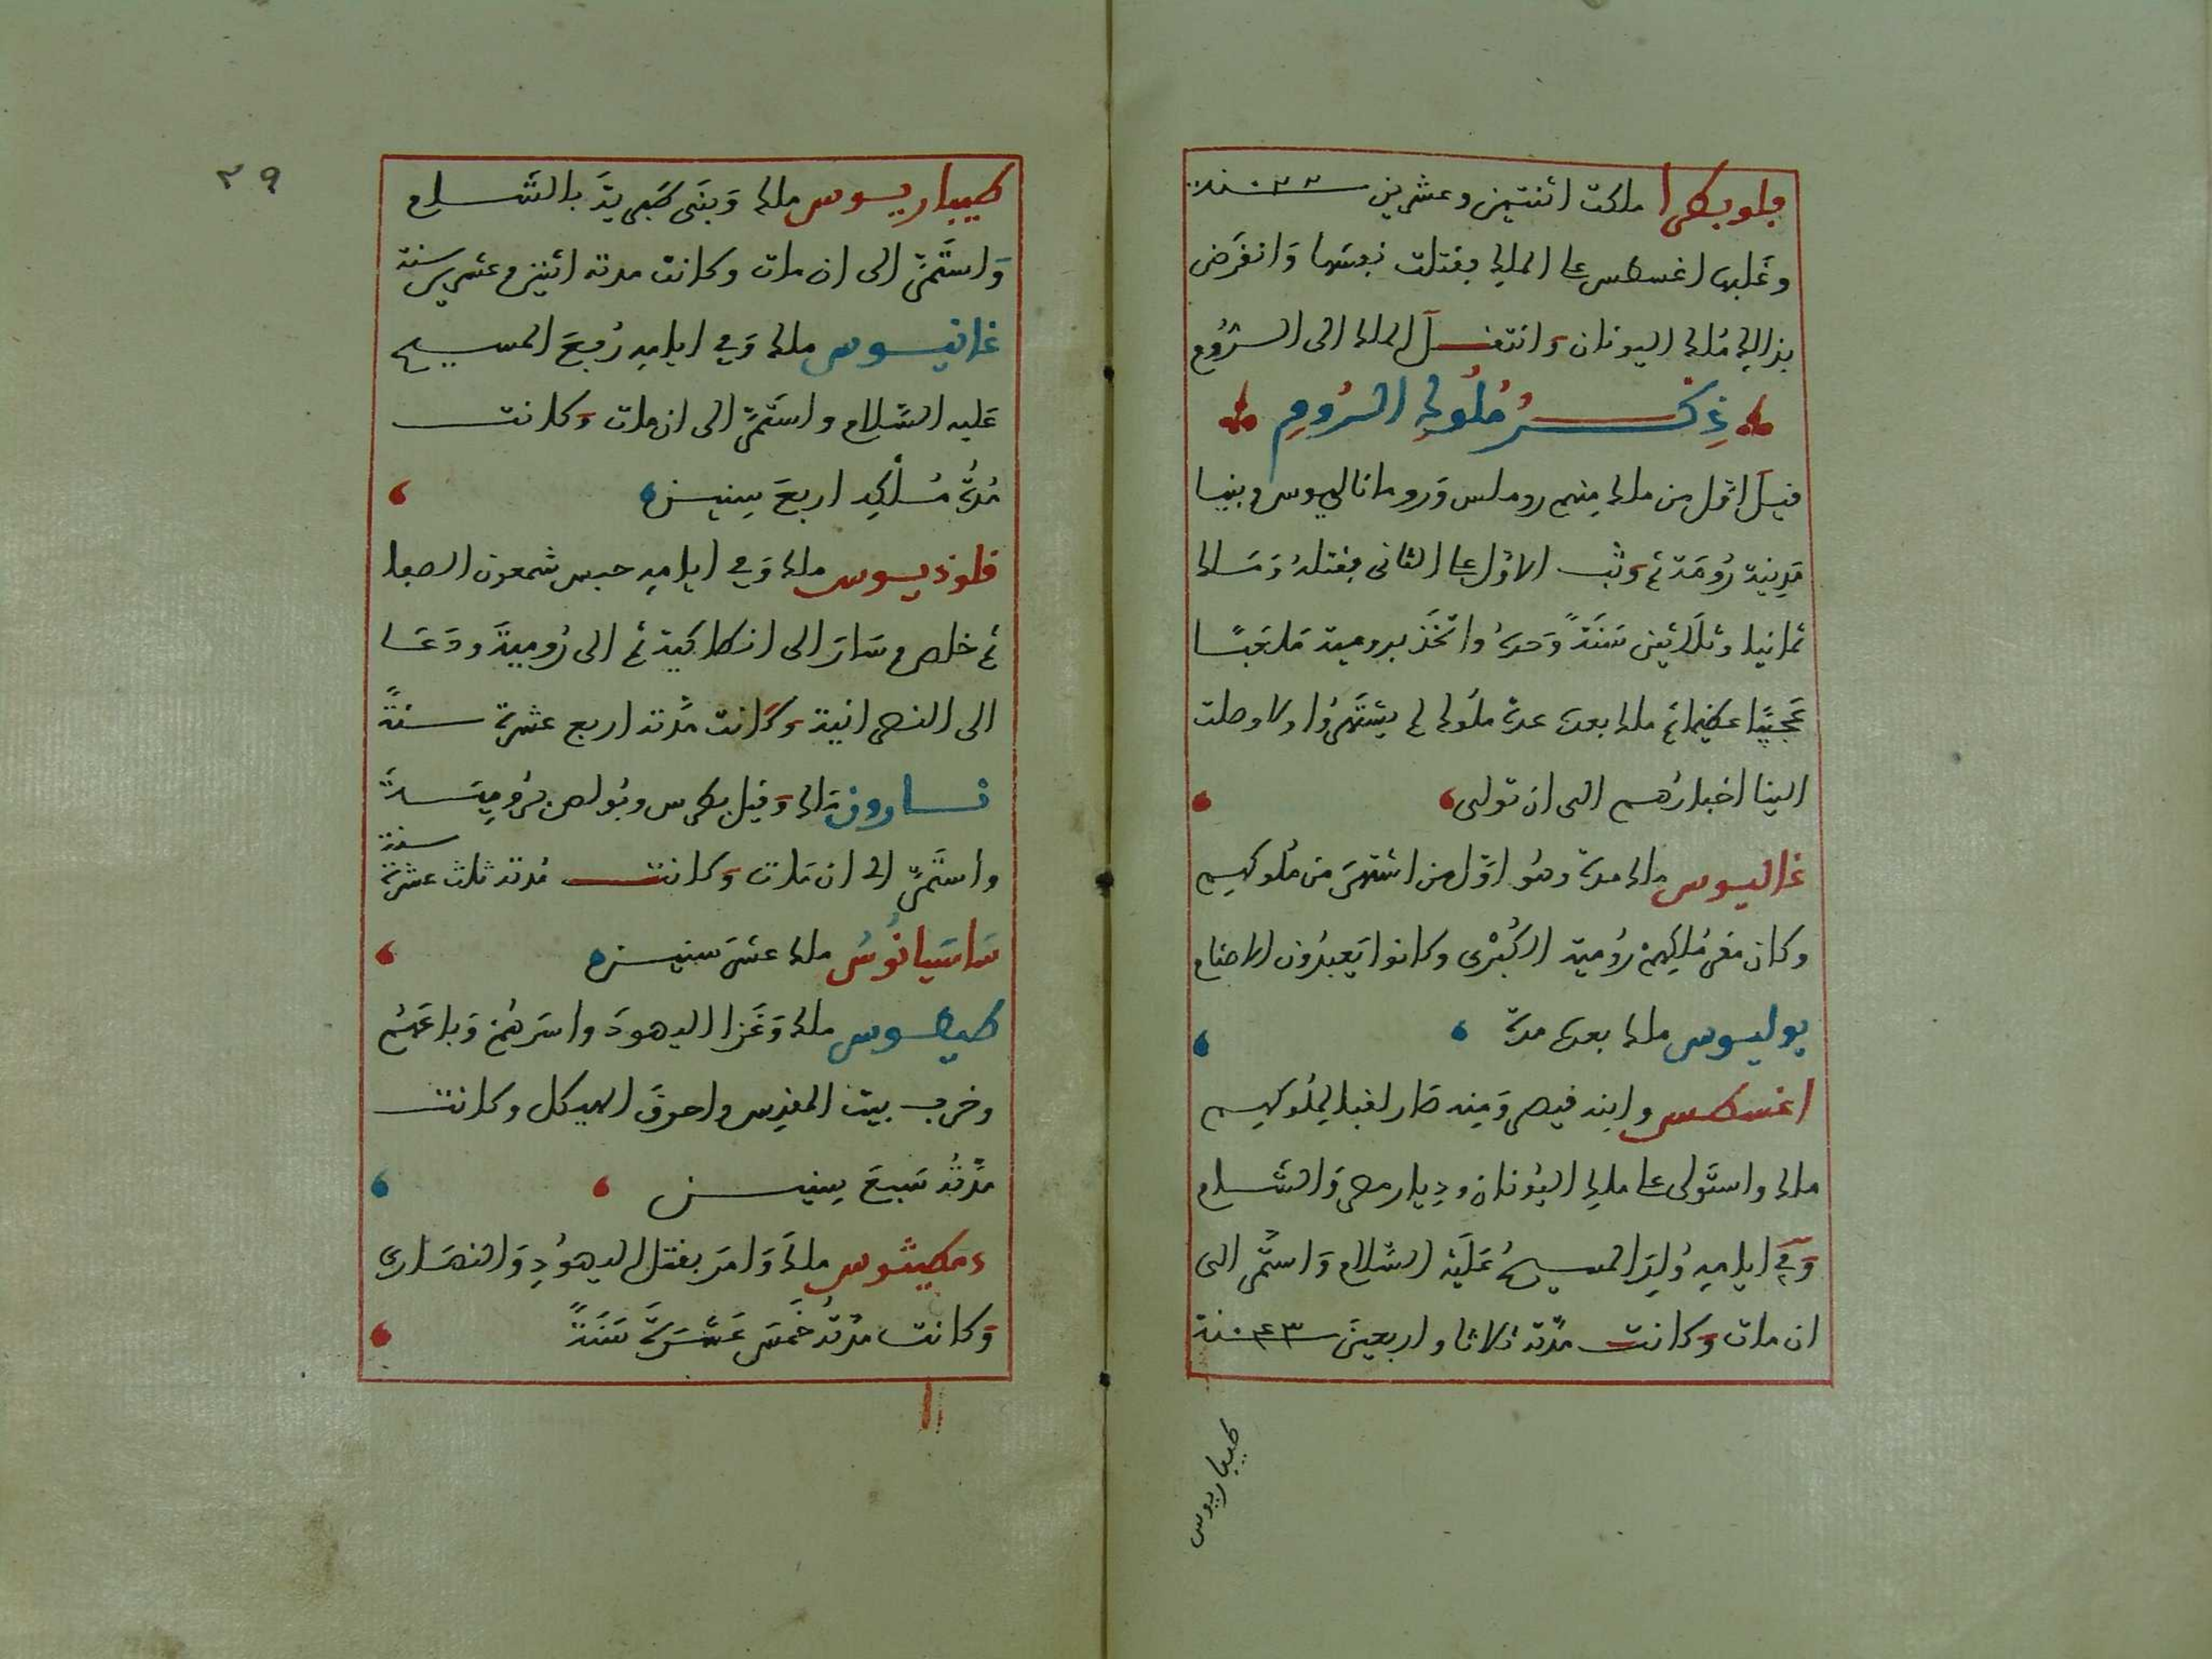 فلوبطرا ملكت اثنتين وعشرين سنة ٢٢
وغلبها اغسطس على الملك فقتلت نفسها وَانقرَض
بذالك مُلك اليونان وَانتقل الملك الى الرُّوم
ذِكْرُ مُلُوكِ الرُومِ
قيلَ اوّل من ملك منهم روملس وَروماناليوس وبنيا
مَدِينة رُومَة ثم وَثب الاوّل على الثانى فقتلهُ وَمَلك
ثمانيا وثلَاثين سَنَةً وَحدهُ واتخَذ برومية مَلعَبًا
عَجيبًا عظيما ثم ملك بعده عدة ملُوك لم يشتَهرُوا ولا وصلت
الينا اخبارُهم الى ان تولى
غاليوس ملك مدة وهُو اوّل من اشتهرَ من ملُوكهم
وكان مقر مُلكِهمْ رُومية الكُبْرى وكانوا يَعبدُون الاصنام
يوليوس ملك بعده مدة
اغسطس وابنه قيصر وَمِنه صَار لقبا لمُلوكهم
ملك واستَولى على ملك اليُونان ودِيار مصر وَالشَّام
وَفي ايامِهِ وُلِدَ المسيحُ عَلَيْه السَّلام وَاستَمر الى
ان مات وَكانت مدّته ثلاثا واربعينَ سنة ٤٣
طيباريوس
٢٩
طيباريوس ملك وَبنَى طَبرِيةَ بالشَّام
وَاستَمرّ الى ان مات وكانت مدته اثنين وعشرين سنة
غانيوس ملك وَفي ايامِهِ رُفِعَ المسيح
عَليه السَّلام واستَمرّ الى ان مات وَكانت
مُدّةُ مُلْكِه اربعَ سِنين
قلوذيوس ملك وَفي ايامِهِ حبس شمعون الصفا
ثم خلص وسَارَ الى انطاكية ثم الى رُوميةَ ودَعَا
الى النصرانية وَكَانت مُدّته اربع عشرة سنةً
نارون مَلك وَقتل بطرس وبُولص برُومِيَةَ
واستَمرّ الى ان مَات وَكانت مُدته ثلث عشرة سنة
سَاسَيانُوسُ ملك عشرَ سنين
طيطوس ملك وَغَزا اليهودَ واسَرهُمْ وَباعَهُم
وخرب بيت المقدِس واحرقَ الهيكل وكانت
مدّتُه سَبعَ سِنين
دمطيثوس ملكَ وَامَر بقتل اليهُودِ وَالنصَارى
وَكانت مدّتُهُ خَمسَ عَشَرَةَ سَنَةً